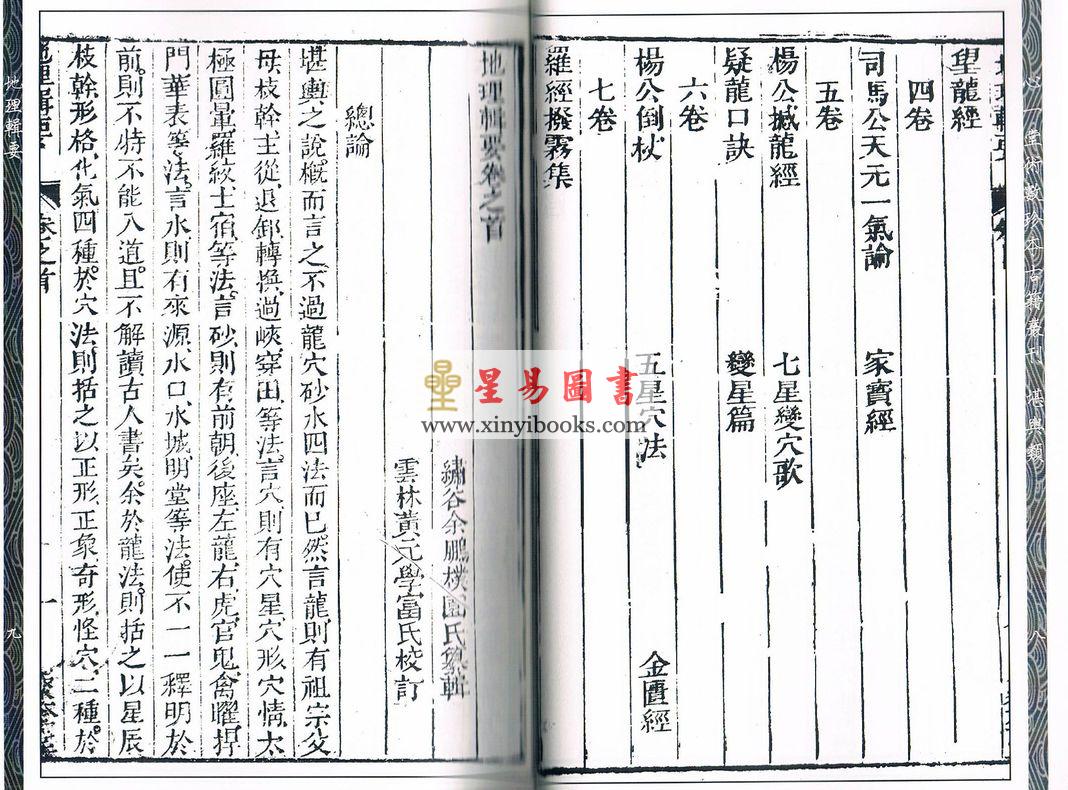 心一堂術數珍本古籍叢刊 堪輿類
八
望龍經
四卷
司馬公天元一氣論 家寶經
五卷
楊公撼龍經 七星變穴歌
疑龍口訣 變星篇
六卷
楊公倒杖 五星穴法 金匱經
七卷
羅經撥霧集
地理輯要卷之首
繡谷余鵬樸園氏纂輯
雲林黃元學富氏校訂
總論
堪輿之說概而言之不過龍穴砂水四法而已然言龍則有祖宗父
母枝幹主從退卸轉換過峽穿田等法言穴則有穴星穴形穴情太
極圓暈羅紋土宿等法言砂則有前朝後座左龍右虎官鬼禽曜捍
門華表等法言水則有來源水口水城明堂等法使不一一釋明於
前則不特不能入道且不解讀古人書矣余於龍法則括之以星辰
枝幹形格化氣四種於穴法則括之以正形正象奇形怪穴二種於
卷之首
一
地理輯要
九
星易圖書
www.xinyibooks.com